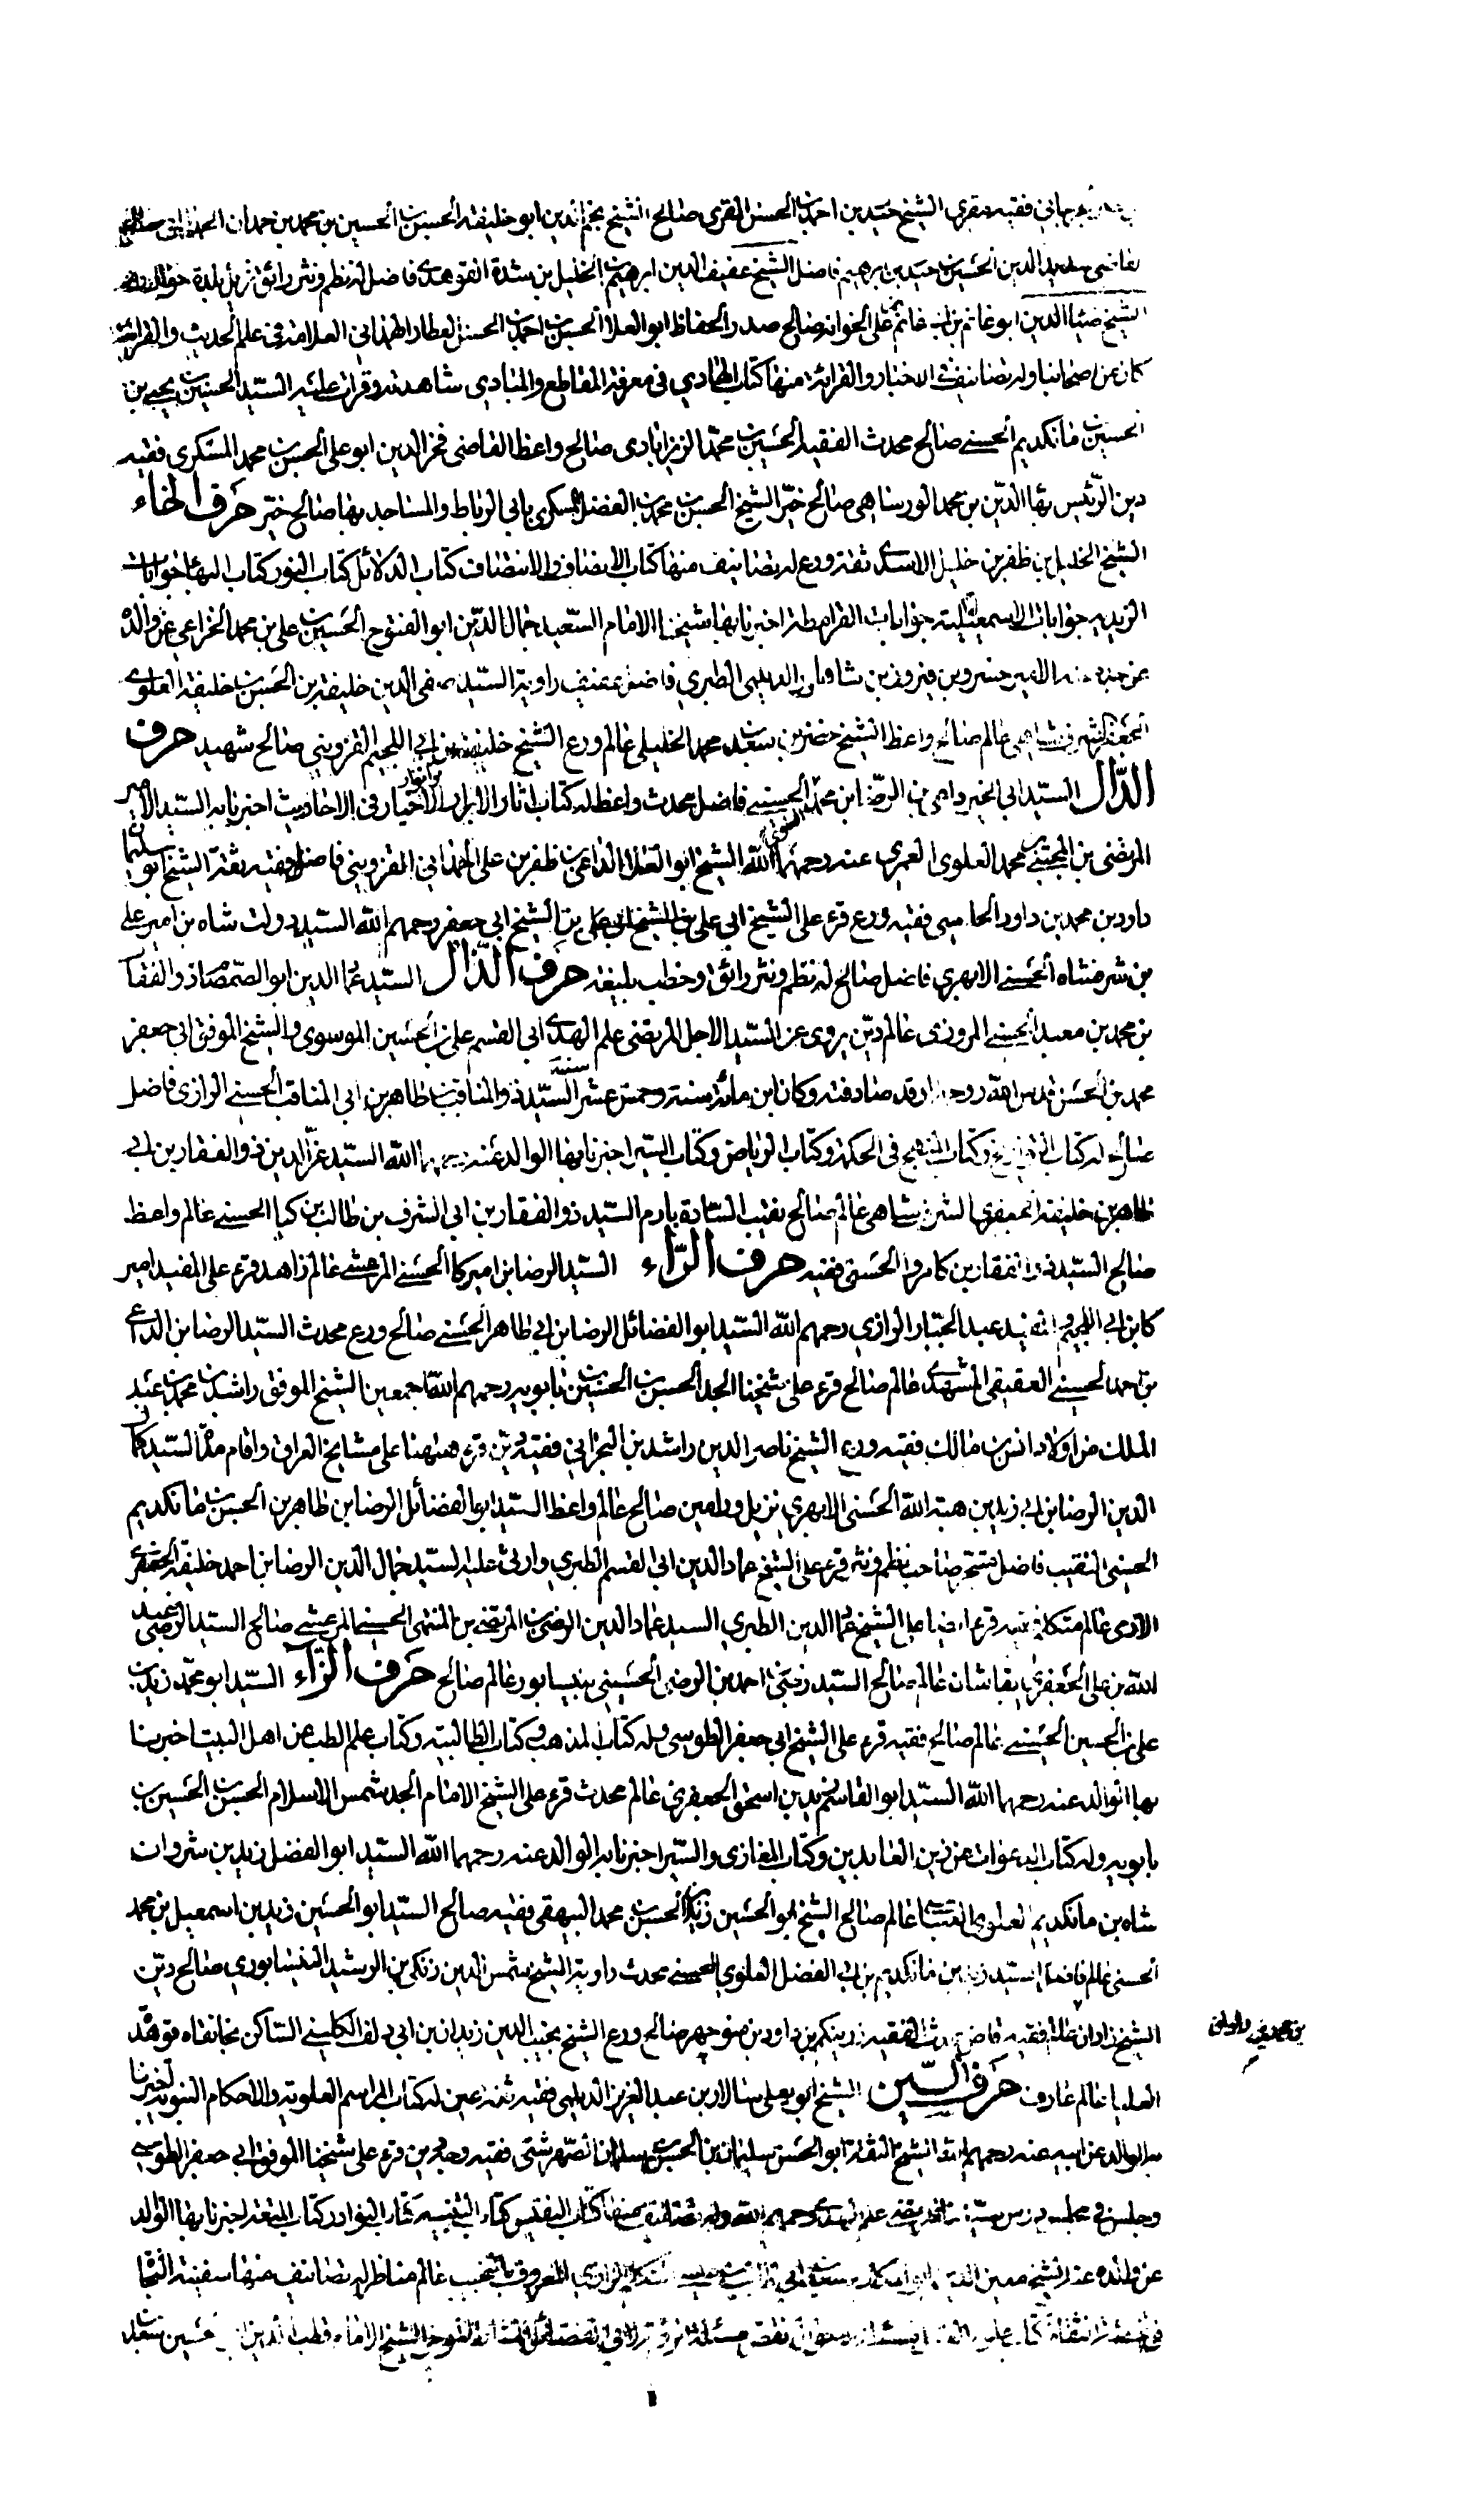 جهاني فقيه مقري الشيخ حيدر بن احمد بن الحسن المقري صالح الشيخ نجم الدين ابو خليفة الحسين بن الحسين بن محمد بن حمدان
القاضي سديد الدين الحسين بن حيدر بن ابرهيم فاضل الشيخ عفيف الدين ابرهيم بن الخليل بن شدة القوهدي فاضل له نظم ونثر رائق نزيل بلدة
الشيخ ضياء الدين ابو غانم بن علي الجوانه صالح صدر الحفاظ ابو العلا الحسن بن احمد بن الحسن العطار الهمداني العلامة في علم الحديث والقرائة
كان من اصحابنا وله تصانيف في الاخبار والقرائة منها كتاب الهادي في معرفة المقاطع والمبادي شاهدته وقرات عليه السيد الحسين بن يحيى بن
الحسين مانكديم الحسني صالح محدث الفقيه الحسين بن محمد الزيزابادي صالح واعظ القاضي فخر الدين ابو علي الحسن بن محمد السكري فقيه
دين الرئيس بهاء الدين بن محمد الورساهي صالح خير الشيخ الحسن بن محمد بن الفضل المسكري باني الرباط والمساجد بها صالح خير حرف الخاء
الشيخ الخليل بن ظفر بن خليل الاسدي ثقة ورع له تصانيف منها كتاب الانصاف والانتصاف كتاب الدلائل كتاب النور كتاب البهاء جوابات
الزيدية جوابات الاسمعيلية جوابات القرامطة اخبرنا بها شيخنا الامام السعيد جمال الدين ابو الفتوح الحسين بن علي بن محمد الخزاعي عن والده
عن جده عنه الامير خسرو بن فيروز بن شاهاور الديلمي الطبري فاضل راوية السيد صفي الدين خليفة بن الحسن بن خليفة العلوي
الجعفري شرفشاهي عالم صالح واعظ الشيخ خضر بن سعد بن محمد الخليلي عالم ورع الشيخ خليفة بن ابي اللجيم القزويني صالح شهيد حرف
الدال السيد ابي الخير داعي بن الرضا ابن محمد الحسيني فاضل محدث واعظ له كتاب اثار الابرار وانوار الاخيار في الاحاديث اخبرنا به السيد الاصيل
المرتضى بن المجتبى بن محمد العلوي العمري عنه رحمهما الله الشيخ ابو العلا الداعي بن ظفر بن علي الحمداني القزويني فاضل فقيه ثقة الشيخ ابو سليمان
داود بن محمد بن داود الحاسي فقيه ورع قرء على الشيخ ابي علي بن الشيخ ابي جعفر رحمهم الله السيد دولت شاه بن امير علي
بن شرفشاه الحسني الابهري فاضل صالح له نظم ونثر رائق وخطب بليغة حرف الذال السيد عماد الدين ابو الصمصام ذوالفقار
بن محمد بن معبد الحسني المروزي عالم دين يروي عن السيد الاجل المرتضى علم الهدى ابي القسم علي بن الحسين الموسوي والشيخ الموفق ابي جعفر
محمد بن الحسن قدس الله روحهما وقد صادفته وكان ابن مائة سنة وخمس عشر سنة السيد ذو المناقب بن طاهر بن ابي المناقب الحسني الرازي فاضل
صالح له كتاب التواريخ وكتاب المنهج في الحكمة وكتاب الرياض وكتاب السير اخبرنا بها الوالد عنه رحمهما الله السيد عز الدين ذو الفقار بن ابي
طاهر بن خليفة الجعفري الشرفشاهي عالم صالح نقيب السادة بارم السيد ذو الفقار بن ابي الشرف بن طالب بن كيا الحسني عالم واعظ
صالح السيد ذو الفقار بن كامرو الحسني فقيه حرف الراء السيد الرضا بن اميركا الحسني المرعشي عالم زاهد قرء على المفيد امير
كا بن ابي اللجيم المفيد عبد الجبار الرازي رحمهم الله السيد ابو الفضائل الرضا بن ابي طاهر الحسني صالح ورع محدث السيد الرضا بن الداعي
بن احمد الحسيني العقيقي المشهدي عالم صالح قرء على شيخنا الجد الحسن بن الحسين بن بابويه رحمهم الله اجمعين الشيخ الموفق راشد بن محمد بن عبد
الملك من اولاد انس بن مالك فقيه ورع الشيخ ناصر الدين راشد بن البحراني فقيه دين قرء ههنا على مشايخ العراق واقام مدة السيد كمال
الدين الرضا بن ابي زيد بن هبة الله الحسني الابهري نزيل ورامين صالح عالم واعظ السيد ابو الفضائل الرضا بن طاهر بن الحسن بن مانكديم
الحسني النقيب فاضل متبحر صاحب نظم ونثر قرء على الشيخ عماد الدين ابي القسم الطبري واربى عليه السيد جمال الدين الرضا بن احمد خليفة الجعفري
الاردي عالم متكلم فقيه قرء ايضا على الشيخ عماد الدين الطبري السيد عماد الدين الرضي بن المرتضى بن المنتهى الحسيني المرعشي صالح السيد الرضي بن عبد
الله بن علي الجعفري بقاشان عالم صالح السيد رضي احمد بن الرضي الحسيني بنيسابور عالم صالح حرف الزاء السيد ابو محمد زيد بن
علي بن الحسين الحسني عالم صالح فقيه قرء على الشيخ ابي جعفر الطوسي وله كتاب المذهب وكتاب الطالبية وكتاب علم الطب عن اهل البيت اخبرنا
بها الوالد عنه رحمهما الله السيد ابو القاسم زيد بن اسحق الجعفري عالم محدث قرء على الشيخ الامام الجد شمس الاسلام الحسن بن الحسين بن
بابويه وله كتاب الدعوات عن زين العابدين وكتاب المغازي والسير اخبرنا به الوالد عنه رحمهما الله السيد ابو الفضل زيد بن شروان
شاه بن مانكديم العلوي عالم صالح الشيخ ابو الحسين زيد بن الحسن بن محمد البيهقي فقيه صالح السيد ابو الحسين زيد بن اسمعيل بن محمد
الحسني عالم فاضل السيد زيد بن مانكديم بن ابي الفضل العلوي الحسني محدث راوية الشيخ شمس الدين زنكي بن الرشيد النيسابوري صالح دين
الشيخ زادان فقيه الفقيه زرينكم بن داود بن منوچهر صالح ورع الشيخ نجيب الدين زيدان بن ابي دلف الكليني الساكن بخانقاه قوهدة
العليا عالم عارف حرف السين الشيخ ابو يعلى سالار بن عبد العزيز الديلمي فقيه ثقة عين له كتاب المراسم العلوية والاحكام النبوية اخبرنا
به الوالد عن ابيه عنه رحمهم الله الشيخ الثقة ابو الحسن سليمان بن الحسن بن سلمان الصهرشتي فقيه وجه دين قرء على شيخنا الموفق ابي جعفر الطوسي
وجلس في مجلس درس سيدنا المرتضى علم الهدى رحمهم الله وله تصانيف منها كتاب النفيس كتاب التنبيه كتاب النوادر كتاب المتعة اخبرنا بها الوالد
عن والده عنه الشيخ معين الدين الرازي المعروف بالنجيب عالم مناظر له تصانيف منها سفينة النجاة
الشيخ الامام قطب الدين ابو الحسين سعيد